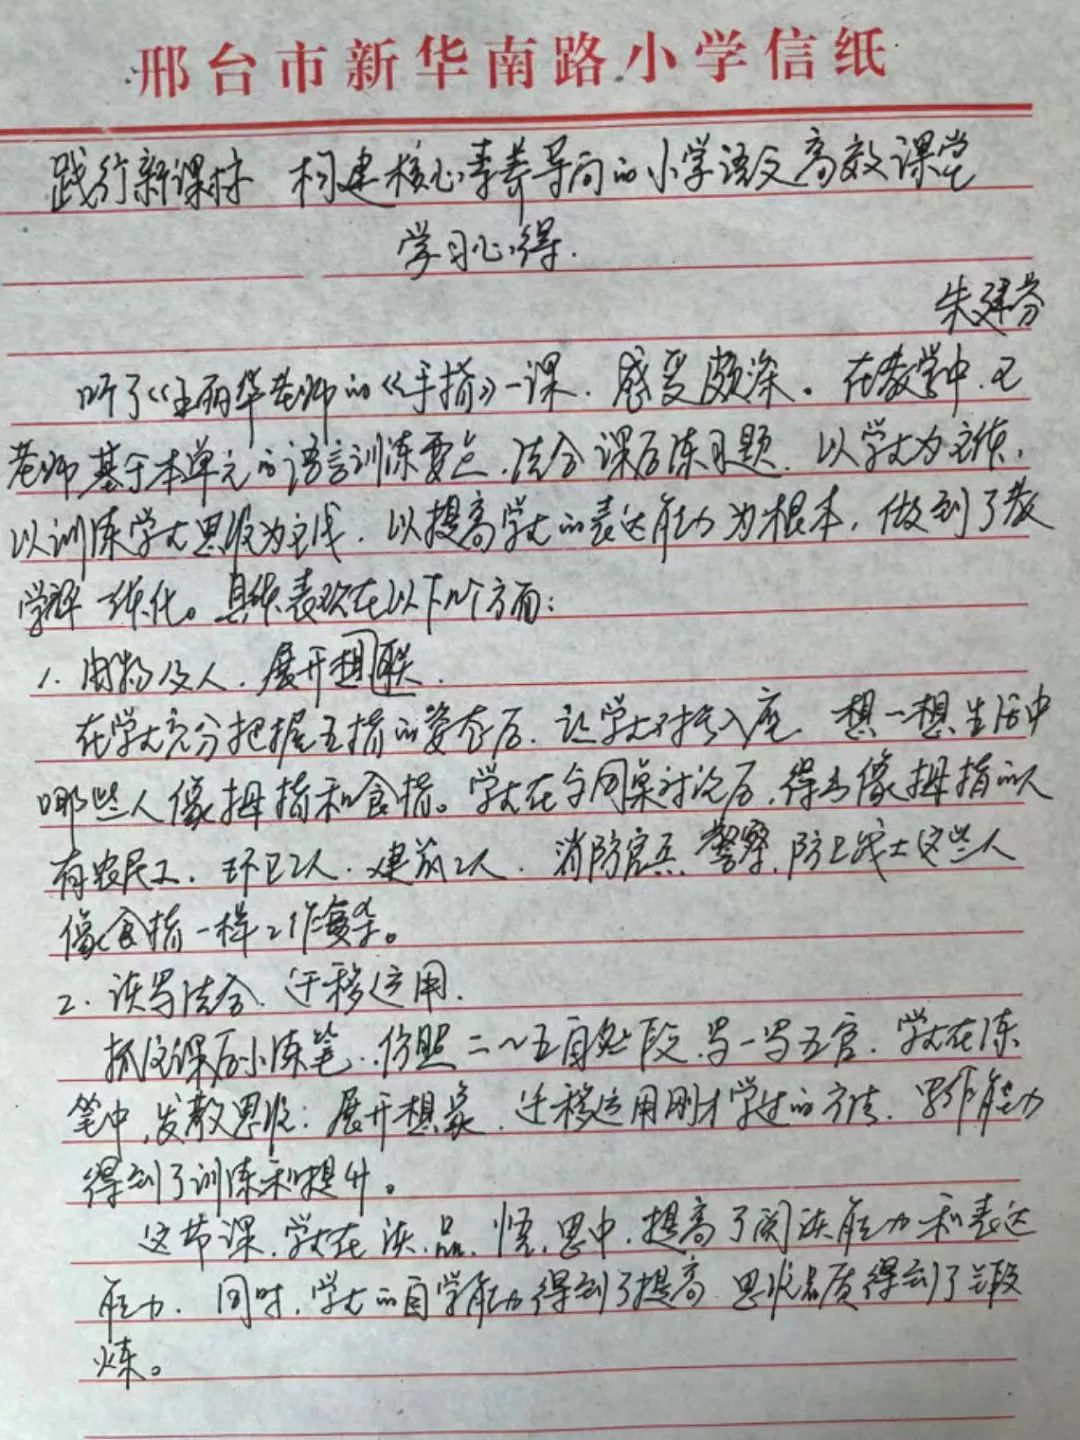 邢台市新华南路小学信纸
践行新课标 构建核心素养导向的小学语文高效课堂
学习心得.
朱建芬
听了《王丽华老师的《手指》一课，感受颇深。在教学中，王
老师基于本单元的语言训练要点，结合课后练习题，以学生为主体，
以训练学生思维为主线，以提高学生的表达能力为根本，做到了教
学评一体化。具体表现在以下几个方面：
1. 由物及人，展开想联.
在学生充分把握五指的姿态后，让学生对号入座，想一想生活中
哪些人像拇指和食指。学生在与同桌讨论后，得出像拇指的人
有农民工、环卫工人、建筑工人，消防官兵、警察、防卫战士这些人
像食指一样工作复杂。
2. 读写结合，迁移运用.
抓住课后小练笔，仿照二~五自然段，写一写五官，学生在练
笔中，发散思维，展开想象，迁移运用刚才学过的方法，写作能力
得到了训练和提升。
这节课，学生在读、品、悟、思中，提高了阅读能力和表达
能力，同时，学生的自学能力得到了提高，思维品质得到了锻
炼。